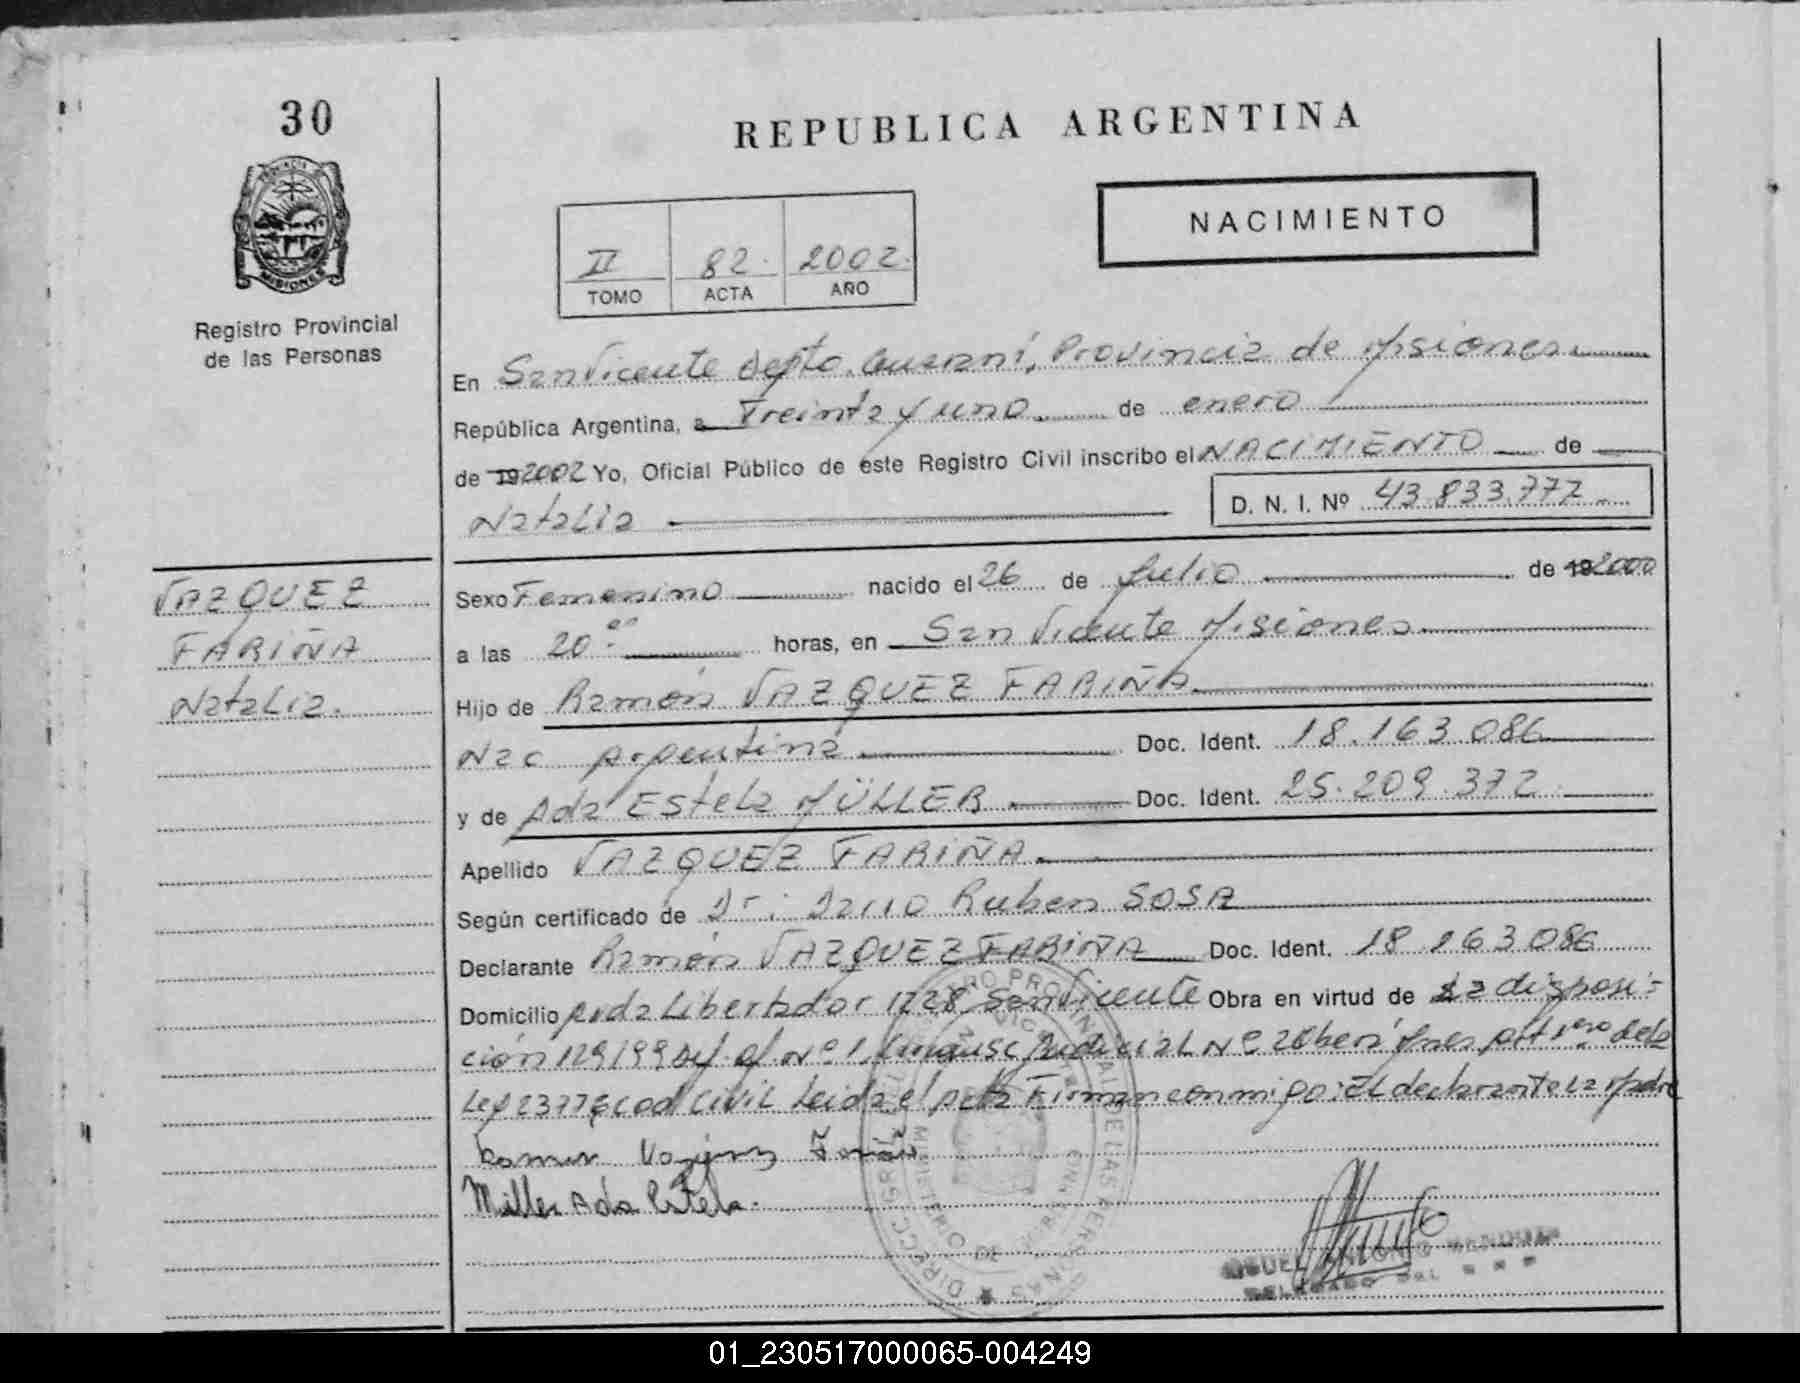 30
REPUBLICA ARGENTINA
NACIMIENTO
PROVINCIA DE
MISIONES
II 82. 2002.
TOMO ACTA AÑO
Registro Provincial
de las Personas
En San Vicente Depto. Guaraní, Provincia de Misiones
República Argentina, a Treinta y uno de enero
de 192002 Yo, Oficial Público de este Registro Civil inscribo el NACIMIENTO de
Natalia D. N. I. Nº 43.833.777
VAZQUEZ
FARIÑA
Natalia.
Sexo Femenino nacido el 26 de Julio de 192000
a las 20:00 horas, en San Vicente Misiones
Hijo de Ramón VAZQUEZ FARIÑA
Nac Argentina Doc. Ident. 18.163.086
y de Ada Estela MÜLLER Doc. Ident. 25.209.372
Apellido VAZQUEZ FARIÑA
Según certificado de Dr: Dario Ruben SOSA
Declarante Ramón VAZQUEZ FARIÑA Doc. Ident. 18.163.086
Domicilio Avda Libertador 1228 San Vicente Obra en virtud de la disposi-
ción 129/99 Nº 1, Judicial Nº 2 Oberá Mnes Art 1ero de la
Ley 23776 Cod Civil Leida el Acta Firman conmigo: El declarante La Madre
Ramon Vazquez Fariña
Miller Ada Estela.
DIRECC GRAL DEL REGISTRO PROVINCIAL DE LAS PERSONAS
MINISTERIO DE
MIGUEL ANTONIO MENDOZA
DELEGADO DEL R P P
01_230517000065-004249